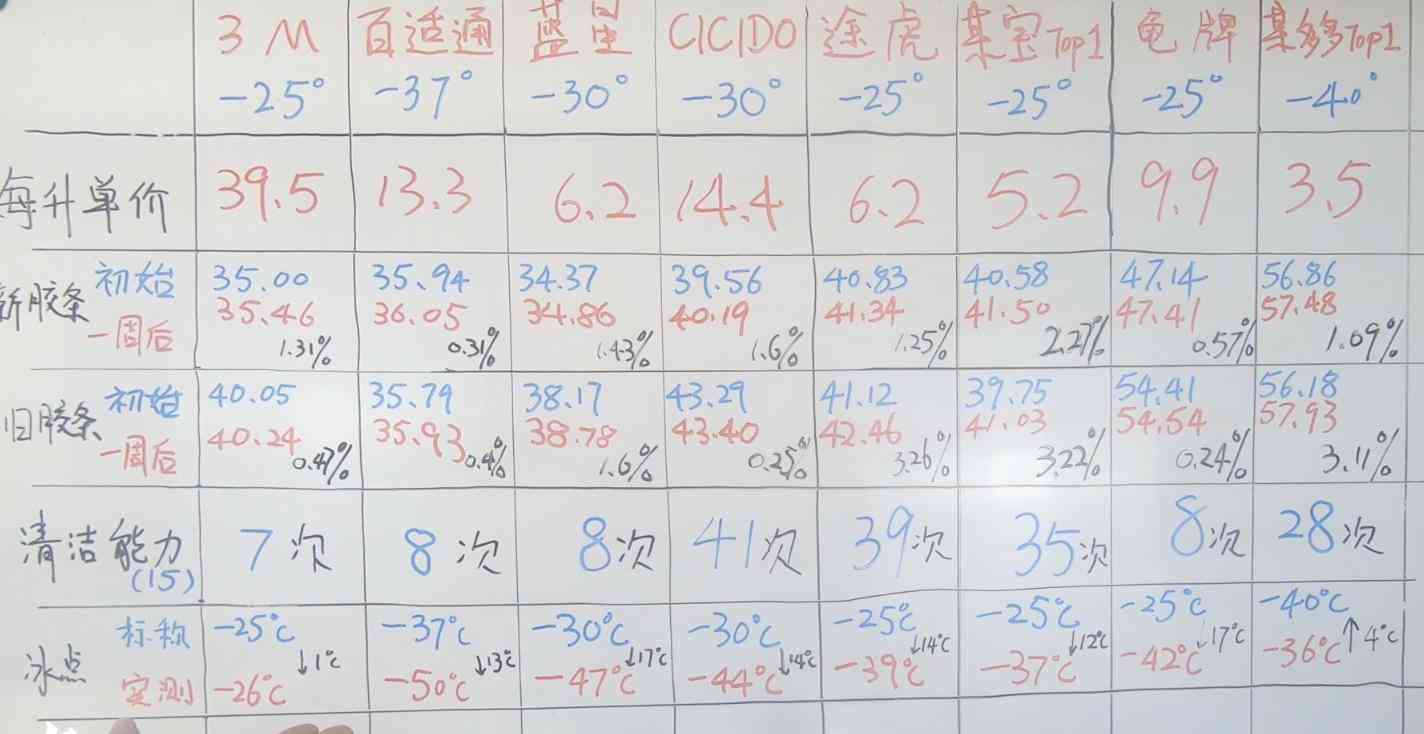 3M 百适通 蓝星 CICIDO 途虎 某宝Top1 龟牌 某多多Top1
-25° -37° -30° -30° -25° -25° -25° -40°
每升单价 39.5 13.3 6.2 14.4 6.2 5.2 9.9 3.5
新胶条 初始 35.00 35.94 34.37 39.56 40.83 40.58 47.14 56.86
一周后 35.46 36.05 34.86 40.19 41.34 41.50 47.41 57.48
1.31% 0.31% 1.43% 1.6% 1.25% 2.27% 0.57% 1.09%
旧胶条 初始 40.05 35.79 38.17 43.29 41.12 39.75 54.41 56.18
一周后 40.24 35.93 38.78 43.40 42.46 41.03 54.54 57.93
0.47% 0.4% 1.6% 0.25% 3.26% 3.22% 0.24% 3.11%
清洁能力 7次 8次 8次 41次 39次 35次 8次 28次
(15)
冰点 标称 -25℃ -37℃ -30℃ -30℃ -25℃ -25℃ -25℃ -40℃
↓1℃ ↓13℃ ↓17℃ ↓14℃ ↓14℃ ↓12℃ ↓17℃ ↑4℃
实测 -26℃ -50℃ -47℃ -44℃ -39℃ -37℃ -42℃ -36℃